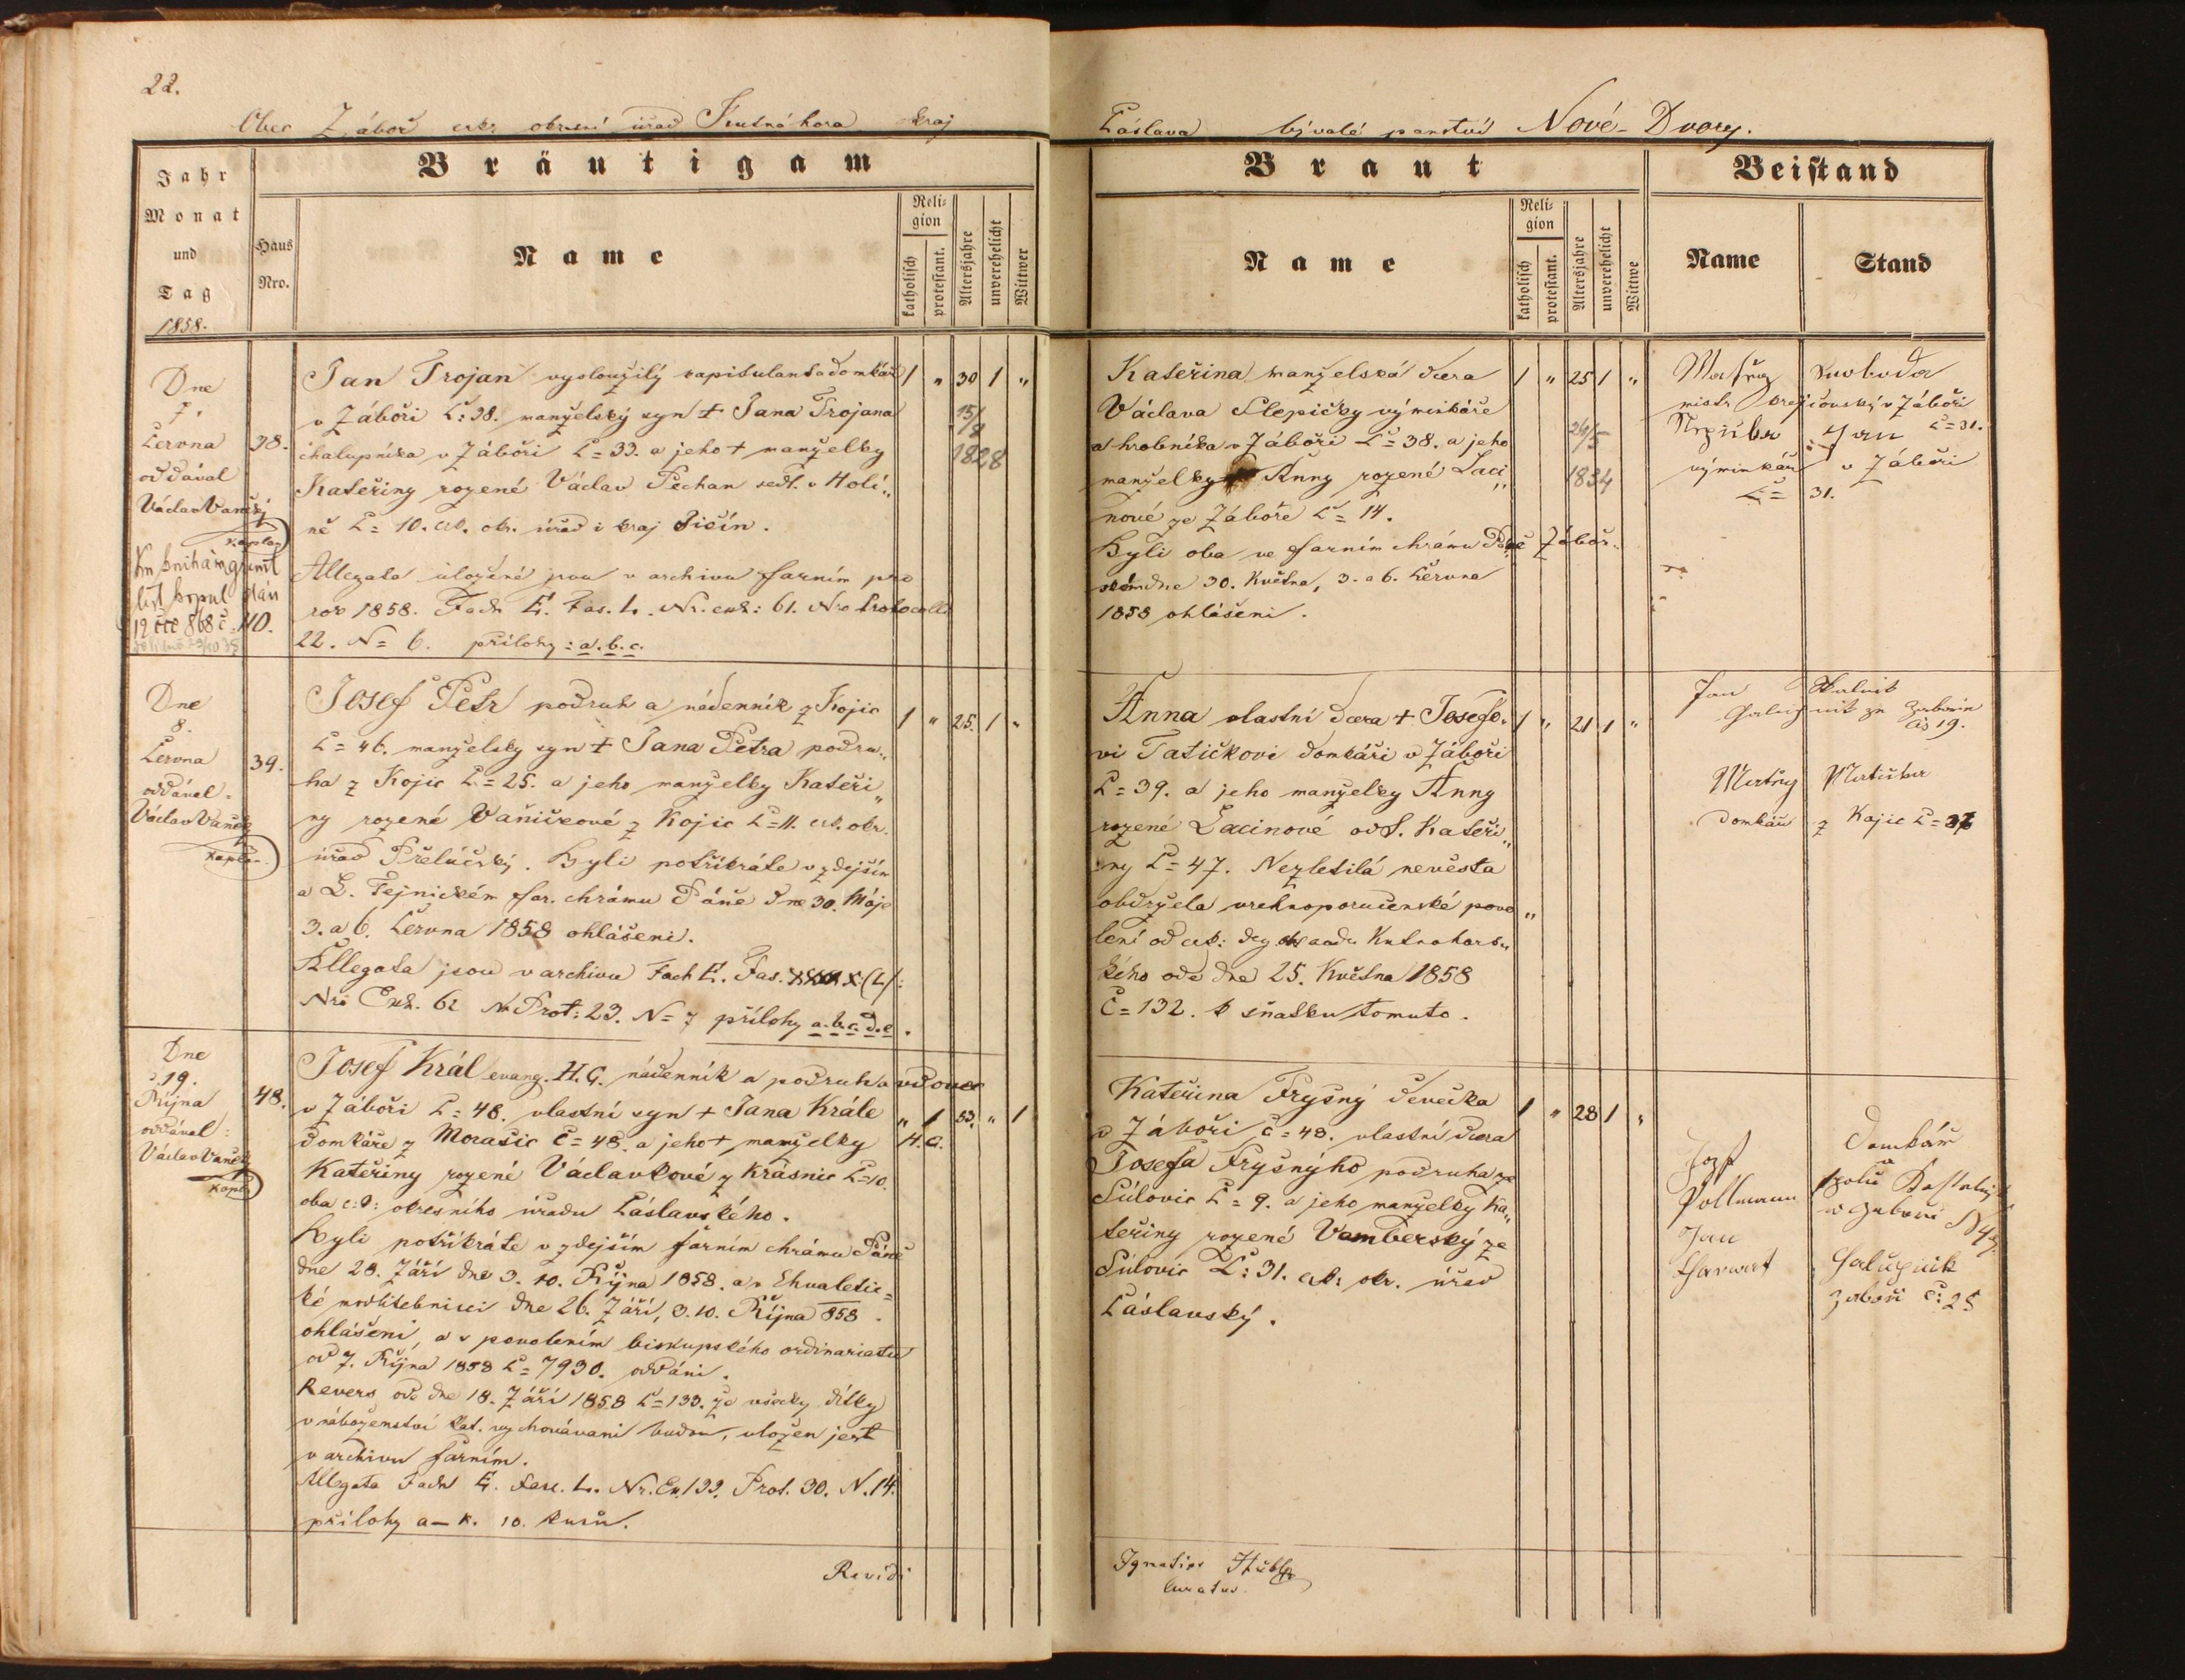 22.
Obec Záboř cís. okresní úřad Kutnáhora kraj
Čáslava bývalé panství Nové-Dvory.
Bräutigam
Braut
Beistand
Jahr
Monat
und
Tag
1858.
Haus
Nro.
Name
Religion
katholisch
protestant.
Altersjahre
unverehelicht
Wittwer
Name
Religion
katholisch
protestant.
Altersjahre
unverehelicht
Wittwe
Name
Stand
Dne
7.
Června
oddával
Václav Vaněk
Kaplan
38.
Jan Trojan vysloužilý kapitulant a domkář
v Záboři Č: 38. manželský syn + Jana Trojana
chalupníka v Záboři Č= 33. a jeho + manželky
Kateřiny rozené Václav Pechan sedl. v Holi„
ně Č= 10. cís. okr. úřad i kraj Jičín.
Allegata uložené jsou v archivu farním pro
rok 1858. Fach E. Fas. L. Nr. enh: 61. Nro Protocolli
22. N= 6. přílohy: a. b. c.
1 „ 30 1 „
15/8
1828
Kateřina manželská dcera
Václava Slepičky výminkáře
a hrobníka v Záboři Č= 38. a jeho
manželky Anny rozené Laci„
nové ze Záboře Č= 14.
Byli oba ve farním chrámu Páně Záboř-
ském dne 30. Května, 3. a 6. Června
1858 ohlášeni.
1 „ 25 1 „
24/5
1834
Matěj Svoboda
mistr krejčovský v Záboři
Č= 31.
Jan
výminkář v Záboři
Č= 31.
Dne
8.
Června
oddával
Václav Vaněk
Kaplan.
39.
Josef Petr podruh a nádenník z Kojic
Č= 46. manželsky syn + Jana Petra podru„
ha z Kojic Č= 25. a jeho manželky Kateři„
ny rozené Vaničkové z Kojic Č= 11. cís. okr.
úřad Přelúčský. Byli potřikráte v zdejším
a L. Tejnickém far. chrámu Páně dne 30. Máje
3. a 6. Června 1858 ohlášeni.
Allegata jsou v archivu Fach E. Fas. (L):
Nro Enh. 62 Nr Prot: 23. N= 7 přílohy a. b. c. d. e.
1 „ 25. 1 „
Anna vlastní dcera + Josefo-
vi Tatíčkovi domkáři v Záboři
Č= 39. a jeho manželky Anny
rozené Lacinové od S. Kateři„
ny Č= 47. Nezletilá nevěsta
obdržela vrchnoporučenské povo„
lení od cís: Kutnohors„
kého ode dne 25. Května 1858
Č= 132. k sňatku tomuto.
1 „ 21 1 „
Jan
Čís 19.
Matěj Matička
domkář z Kojic Č= 37
Dne
19.
Října
oddával:
Václav Vaněk
Kaplan
48.
Josef Král evang. H. C. nádenník a podruh a vdovec
v Záboři Č= 48. vlastní syn + Jana Krále
domkáře z Morašic Č= 48. a jeho + manželky
Kateřiny rozené Václavkové z Krásnic Č= 10.
oba c: k: okresního úřadu Čáslavského.
Byli potřikráte v zdejším farním chrámu Páně
dne 28. Září dne 3. 10. Října 1858. a v Chvaletic=
ké modlitebnici dne 26. Září, 3. 10. Října 858
ohlášeni, a s povolením biskupského ordinariatu
od 7. Října 1858 Č= 7930. oddáni.
Revers ode dne 18. Září 1858 Č= 133. že všecky dítky
v náboženství kat. vychovávani budou, uložen jest
v archivu farním.
Allegata Fach E. Fasc. L. Nr. En. 133. Prot. 30. N. 14.
přílohy a–k. 10. kusů.
„ 1 53. „ 1
H. C.
Kateřina Fryšný děvečka
v Záboři č= 48. vlastní dcera
Josefa Fryšnýho podruha ze
Súlovic Č= 9. a jeho manželky Ka„
teřiny rozené Vamberský ze
Súlovic Č: 31. cís: okr. úřad
Čáslavský.
1 „ 28 1 „
Josef
Pollmann
domkář
Jan
Zaboři č: 25
Revidi
Ignatius
Curatus.